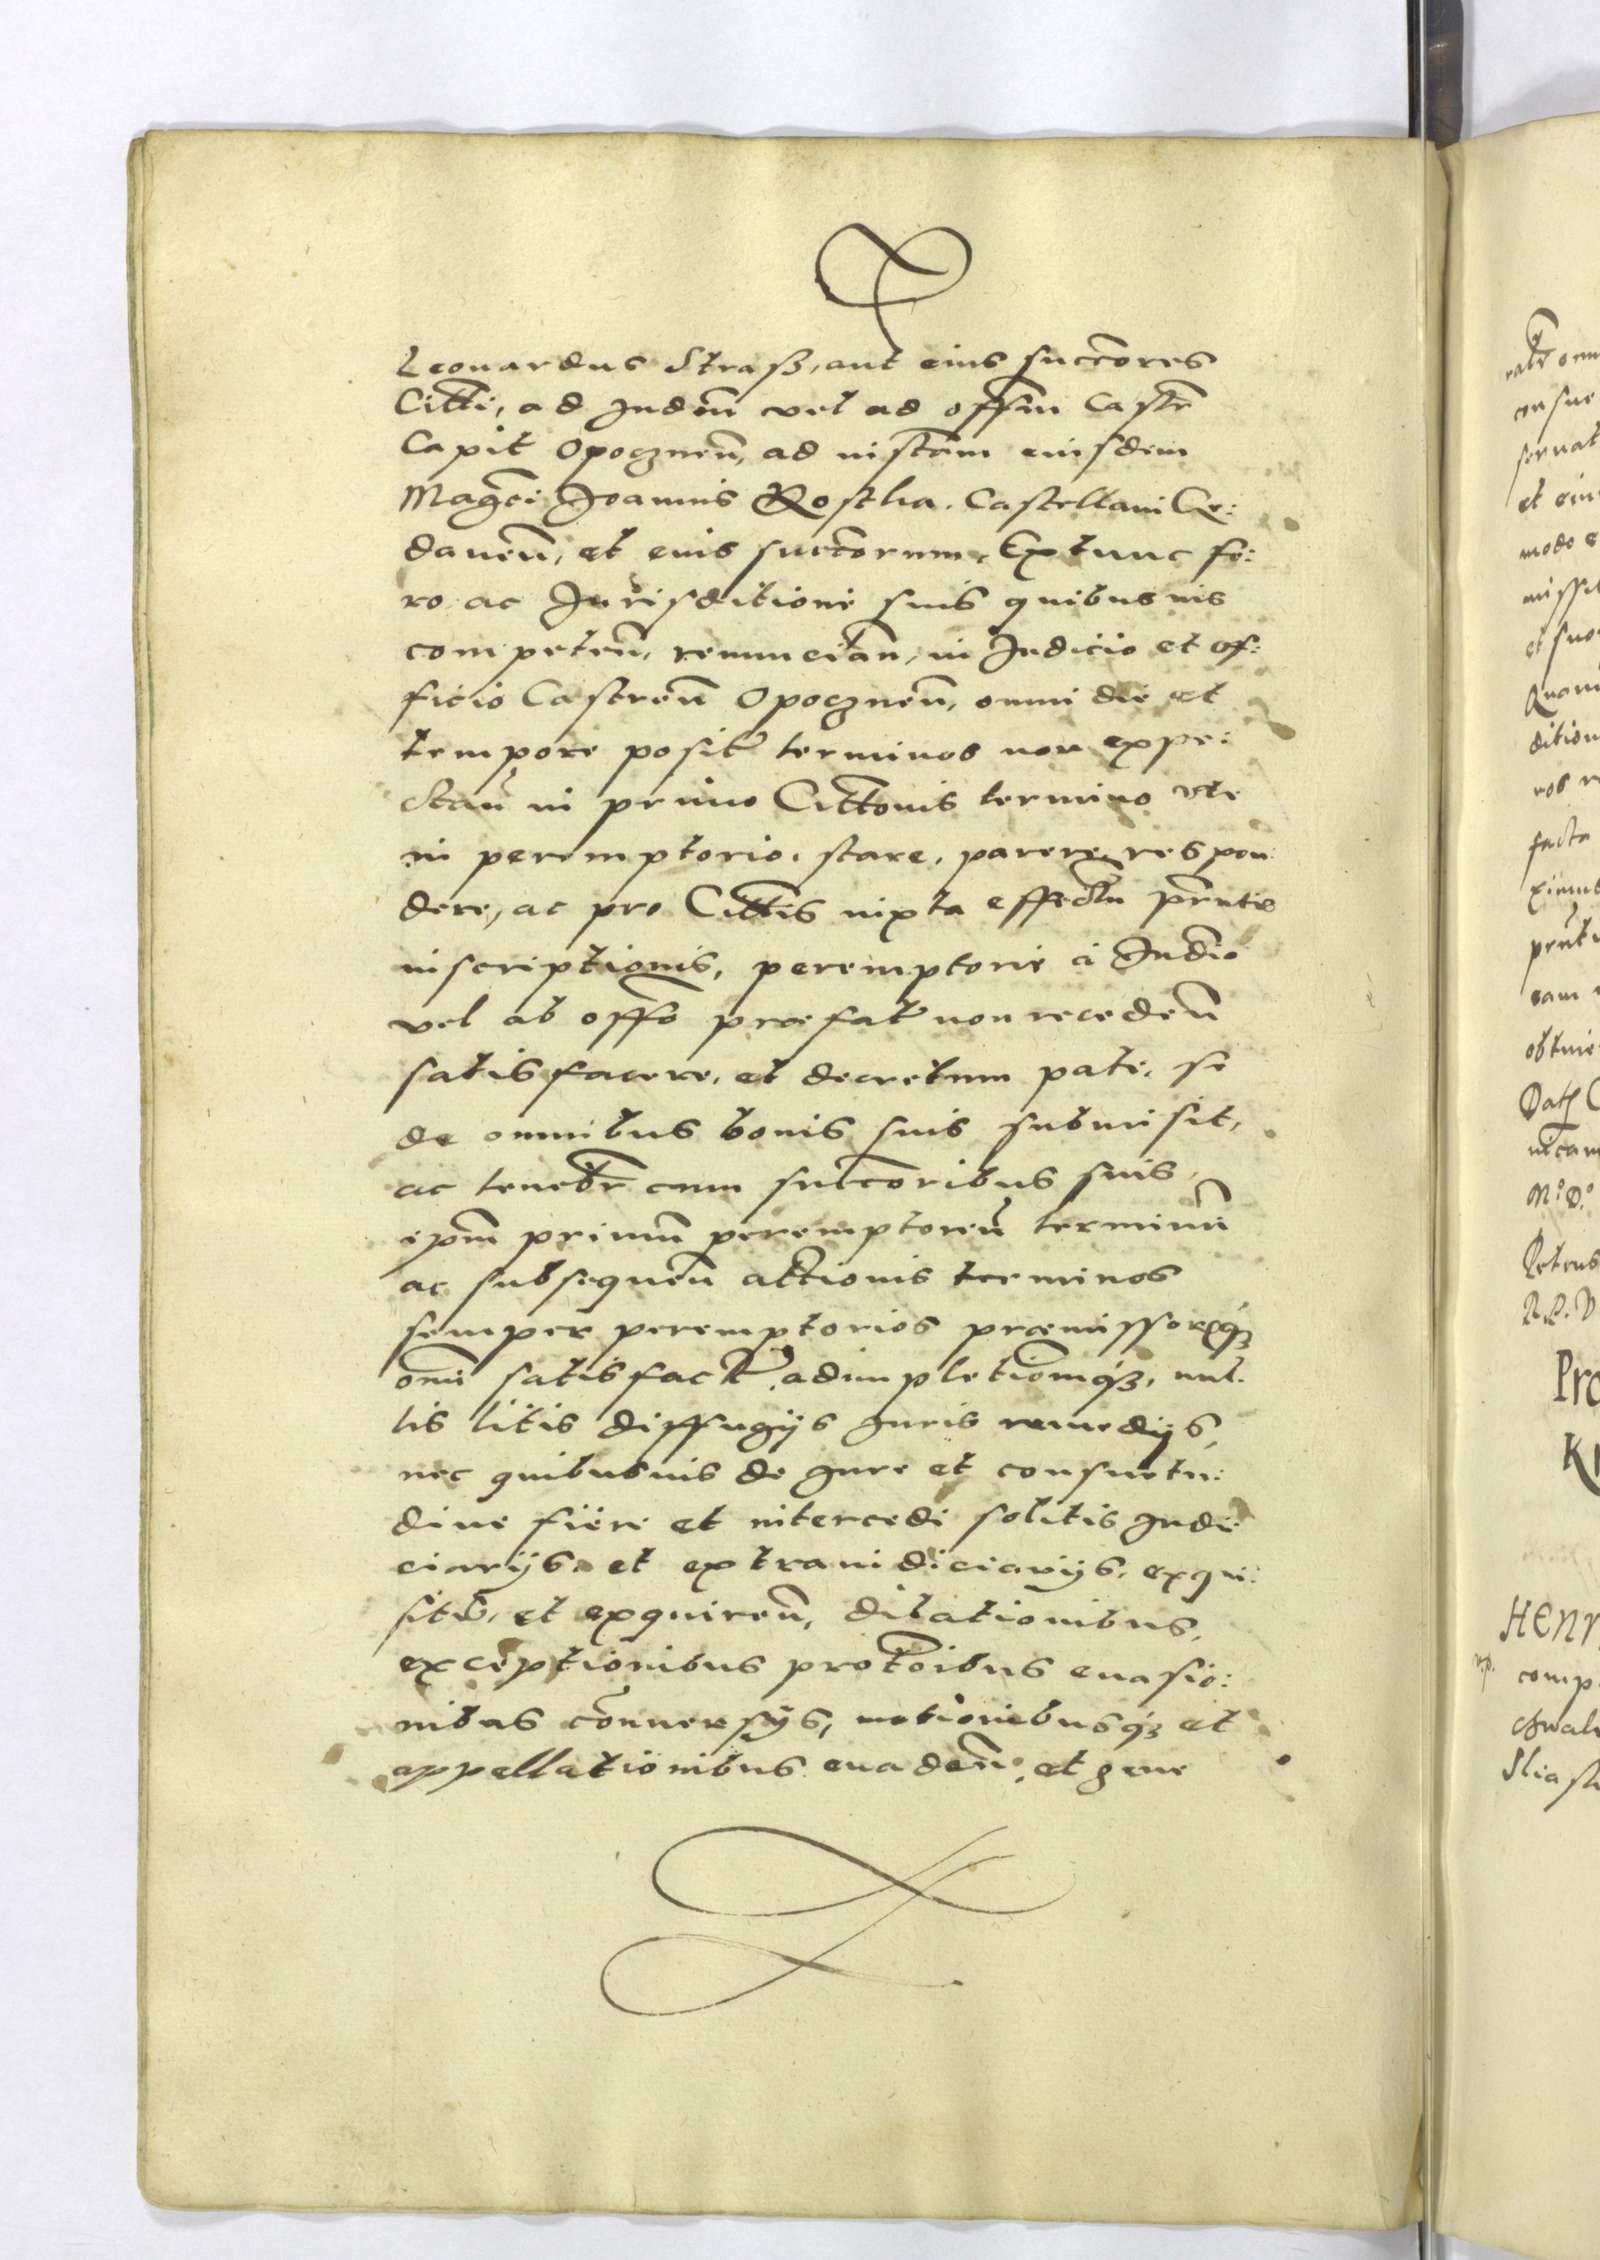 Leonardus Straß, aut eius succores
Citti, ad Judm vel ad offm Castr
Capit Opocznen, ad instam eiusdem
Magci Joannis Kostka Castellani Ge:
danen, et eius succorum. Extunc fo:
ro ac Jurisditione suis quibusuis
competen, renuncian, in Judicio et of:
ficio Castren Opocznen, omni die et
tempore posit terminos non expe:
ctan in primo Cittonis termino vte
in peremptorio, stare, parere, respon:
dere, ac pro Cittis iuxta effectu prntis
inscriptionis, peremptorie a Judio
vel ab offo præfat non receden
satisfacere, et decretum pati, se
de omnibus bonis suis submisit,
ac tenebr cum succoribus suis,
ipm primu peremptoreu terminu
ac subsequen attionis terminos
semper peremptorios præmissorqz
omi satisfact, adimpletiomqz, nul
lis litis diffugijs Juris remedijs,
nec quibusuis de Jure et consuetu:
dine fieri et intercedi solitis Judi
ciarijs et extraiudiciarijs, exqui:
sit, et exquiren, dilationibus,
exceptionibus prottoibus euasio:
nibus conuersijs, motionibusqz et
appellationibus euaden, et gene
ratr omn
consue
seruat
et eiu
modo e
missit
et suo
Quam
dition
ros r
facta
prnti
eam
obtine
Dat C
M. D.
Petrus
Pro
HENR
comp